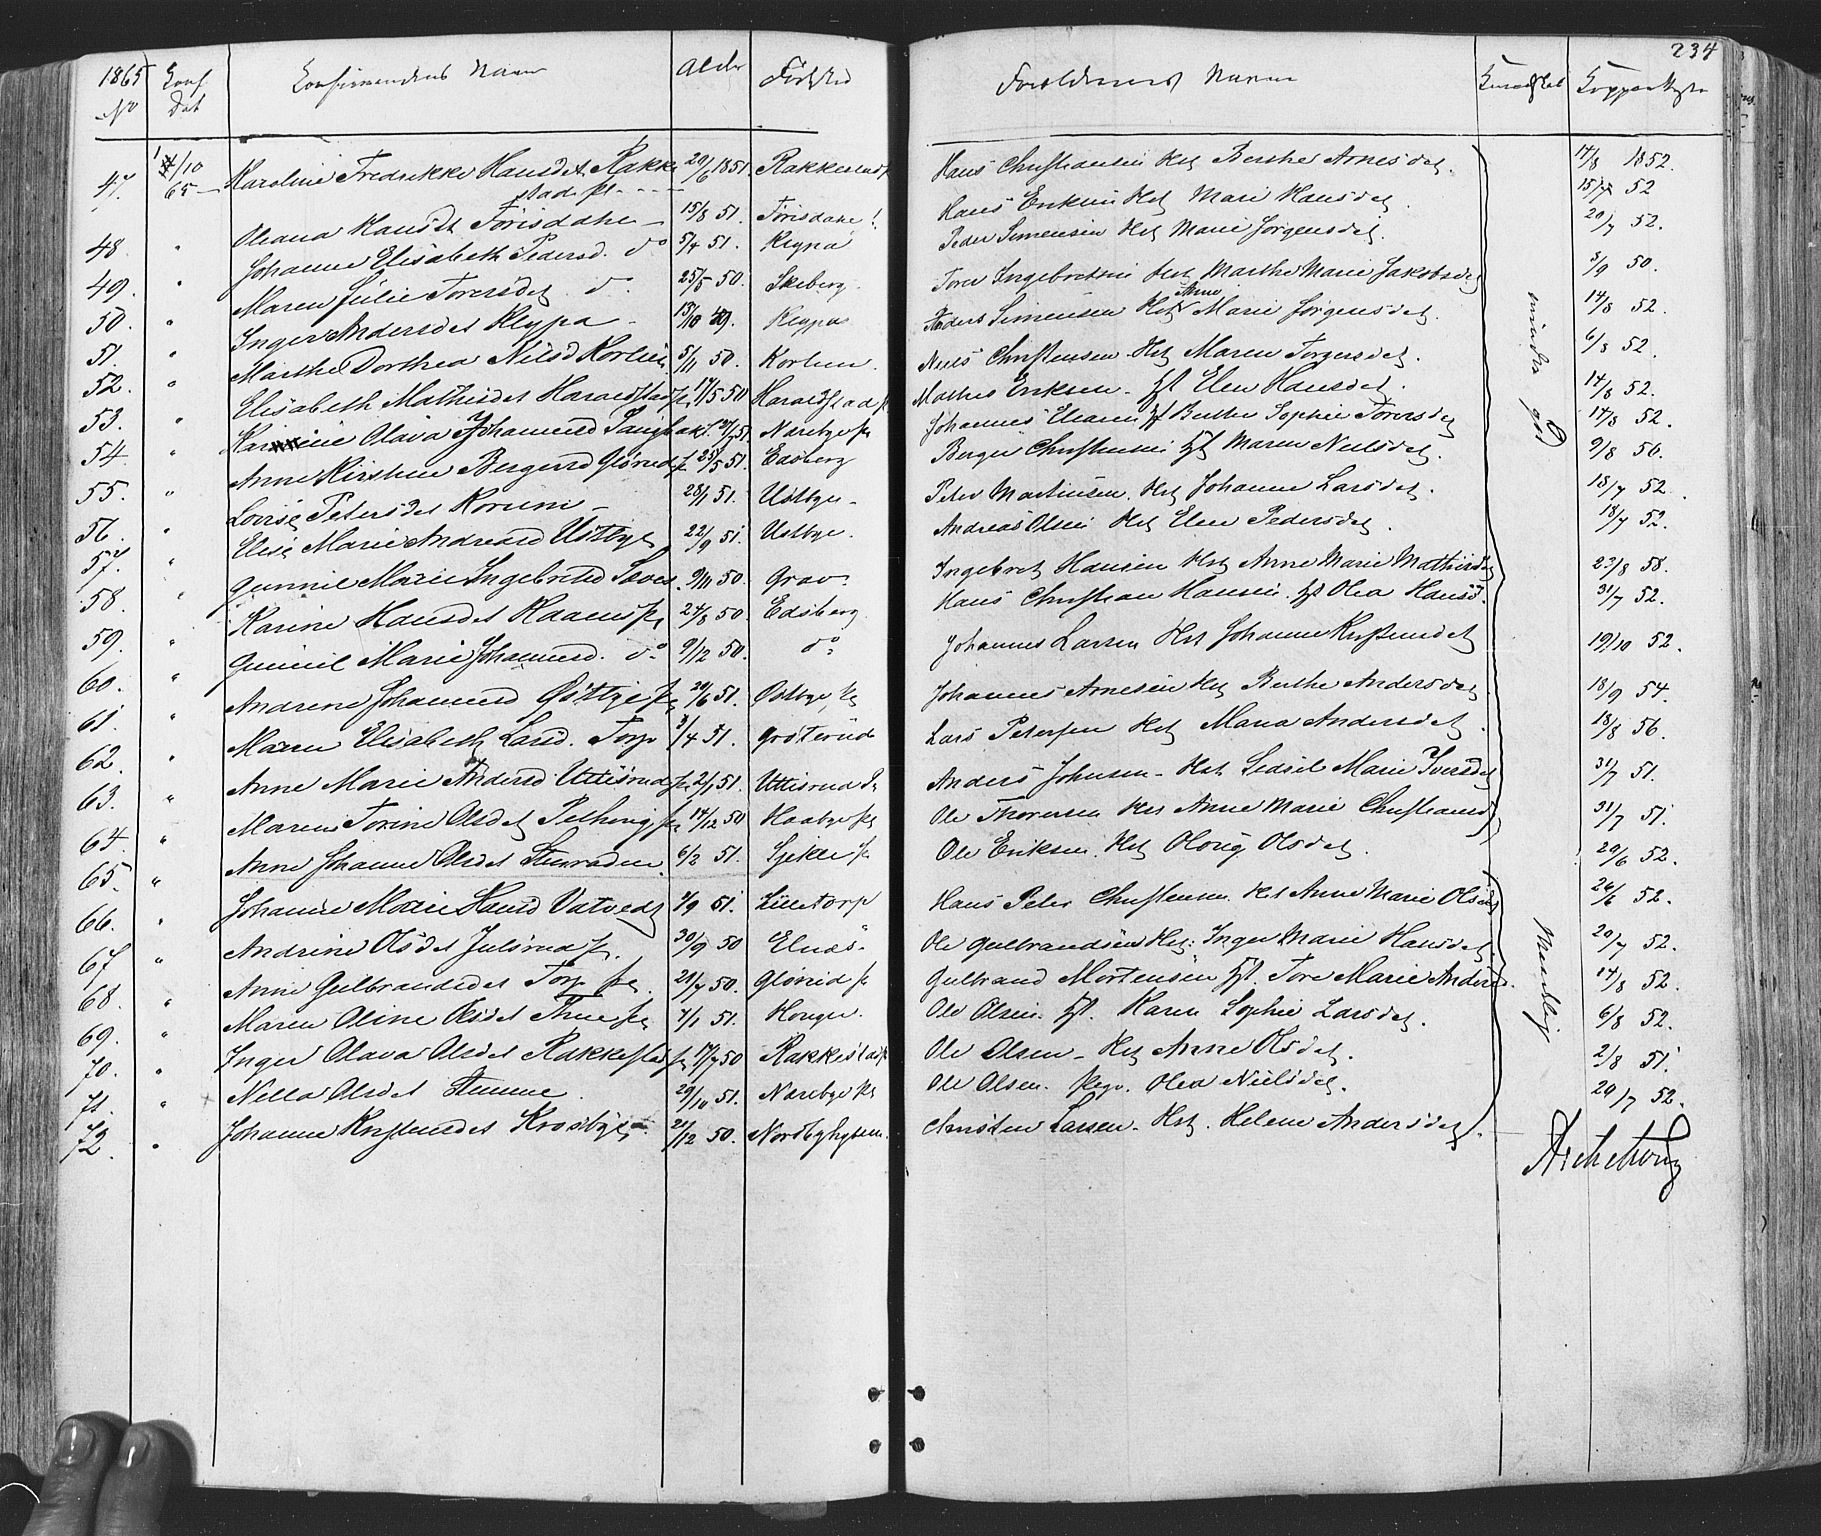 234
1865 Conf. Confirmandens Navn Alder Födsted Forældrenes Navne Kundskab
No Dat
47. 1/10 65 Karoline Fredrikke Hansdet Rakke 20/6 1851 Rakkestad Hans Christiansen Hst Berthe Arnesdet. 14/8 1852.
stad pl.
48. " Oleana Hansdt Torisdahe 15/8 51. Torisdahe Hans Eriksen Hst Mari Hansdet. 52
49. " Johanne Elisabeth Pedersd. do 5/4 51. KLypa Peder Simensen Hst Marie Jörgensdet. 20/7 52.
50. " Maren Julie Toresdet do 25/5 50. Skiberg Tore Ingebretsen Hst Marthe Marie Jakobsdet 3/9 50.
51. " Inger Andersdet Klypa 13/10 49. Klypa Anders Simensen Hst Anne Marie Jörgensdet. 14/8 52.
52. " Marthe Dorthea Nilsd Korlien 5/11 50. Korlien. Niels Christensen Hst Maren Torgersdet. 6/8 52.
53. " Elisabeth Mathisdet Haraldstad pl 17/5 50 Haraldstad pl Mathis Eriksen. Hst Elen Hansdet. 14/8 52.
54. " Olava Johannesd 51. Narebye pl Johannes Hst Berthe Sophie Toresdet 14/8 52.
55. " Anne Kirstine Bergersd Glörud pl 25/5 51. Edsberg Berger Christensen Hst Maren Nielsdet. 9/8 56.
56. " Lovise Petersdet Korum 28/1 51. Ustbye Peter Martinsen. Hst Johanne Larsdet. 18/7 52.
57. " Elise Marie Andreasd Ustbye 22/9 51. Ustbye. Andreas Olsen Hst Elen Pedersdet. 18/7 52.
58. " Gunnil Marie Ingebretsd 9/11 50. Grav. Ingebret Hansen Hst Anne Marie Mathisdet 23/8 58.
59. " Karine Hansdet Haanes pl 24/8 50. Edsberg Hans Christian Hansen Hst Olea Hansd. 31/7 52.
60. " Gunnil Marie Johannesd. do 9/12 50. do Johannes Larsen Hst Johanne Kristensdet 19/10 52.
61. " Andrine Johannesd Östbye pl 20/6 51. Östbye pl Johannes Arnesen Hst Berthe Andersdet 18/9 54.
62. " Maren Elisabeth Larsd. Torp 3/4 51. Grötterud Lars Petersen Hst Maria Andersdet. 18/8 56.
63. " Anne Marie Andersd Uttisrud pl 2/1 51. Uttisrud pl Anders Johnsen Hst Sidsel Marie Iversdet 31/7 51.
64. " Maren Torine Olsdet pl 14/12 50 Haabye pl Ole Thoresen Hst Anne Marie Christiansd 31/7 51.
65. " Anne Johanne Olsdet 6/2 51. pl Ole Eriksen. Hst Olsdet. 20/6 52.
66. " Johanne Marie Hansd Vatvedt 7/9 51. Lilletorp Hans Peter Christensen. Hst Anne Marie Olsdet 26/6 52.
67 " Andrine Olsdet Julsrud pl. 30/9 50 Elnæs. Ole Gulbrandsen Hst: Inger Marie Hansdet. 20/7 52.
68. " Anne Gulbrandsdet Torp pl. 21/7 50. Glörud pl Gulbrand Mortensen Hst. Tore Marie Andersd. 14/8 52.
69. " Maren Oline Olsdet Thue pl 7/1 51. Houger. Ole Olsen. Hst. Karen Sophie Larsdet. 6/8 52.
70. " Inger Olava Olsdet Rakkestad pl 17/7 50 Rakkestad pl Ole Olsen Hst Anne Olsdet. 2/8 51.
71. " Nella Olsdet 29/10 51. Narebye pl Ole Olsen. Olea Nielsdet. 20/7 52.
72. " Johanne Kristensdet Krosbye 21/12 50. Christen Larsen. Hst. Helene Andersdet.
mindre god